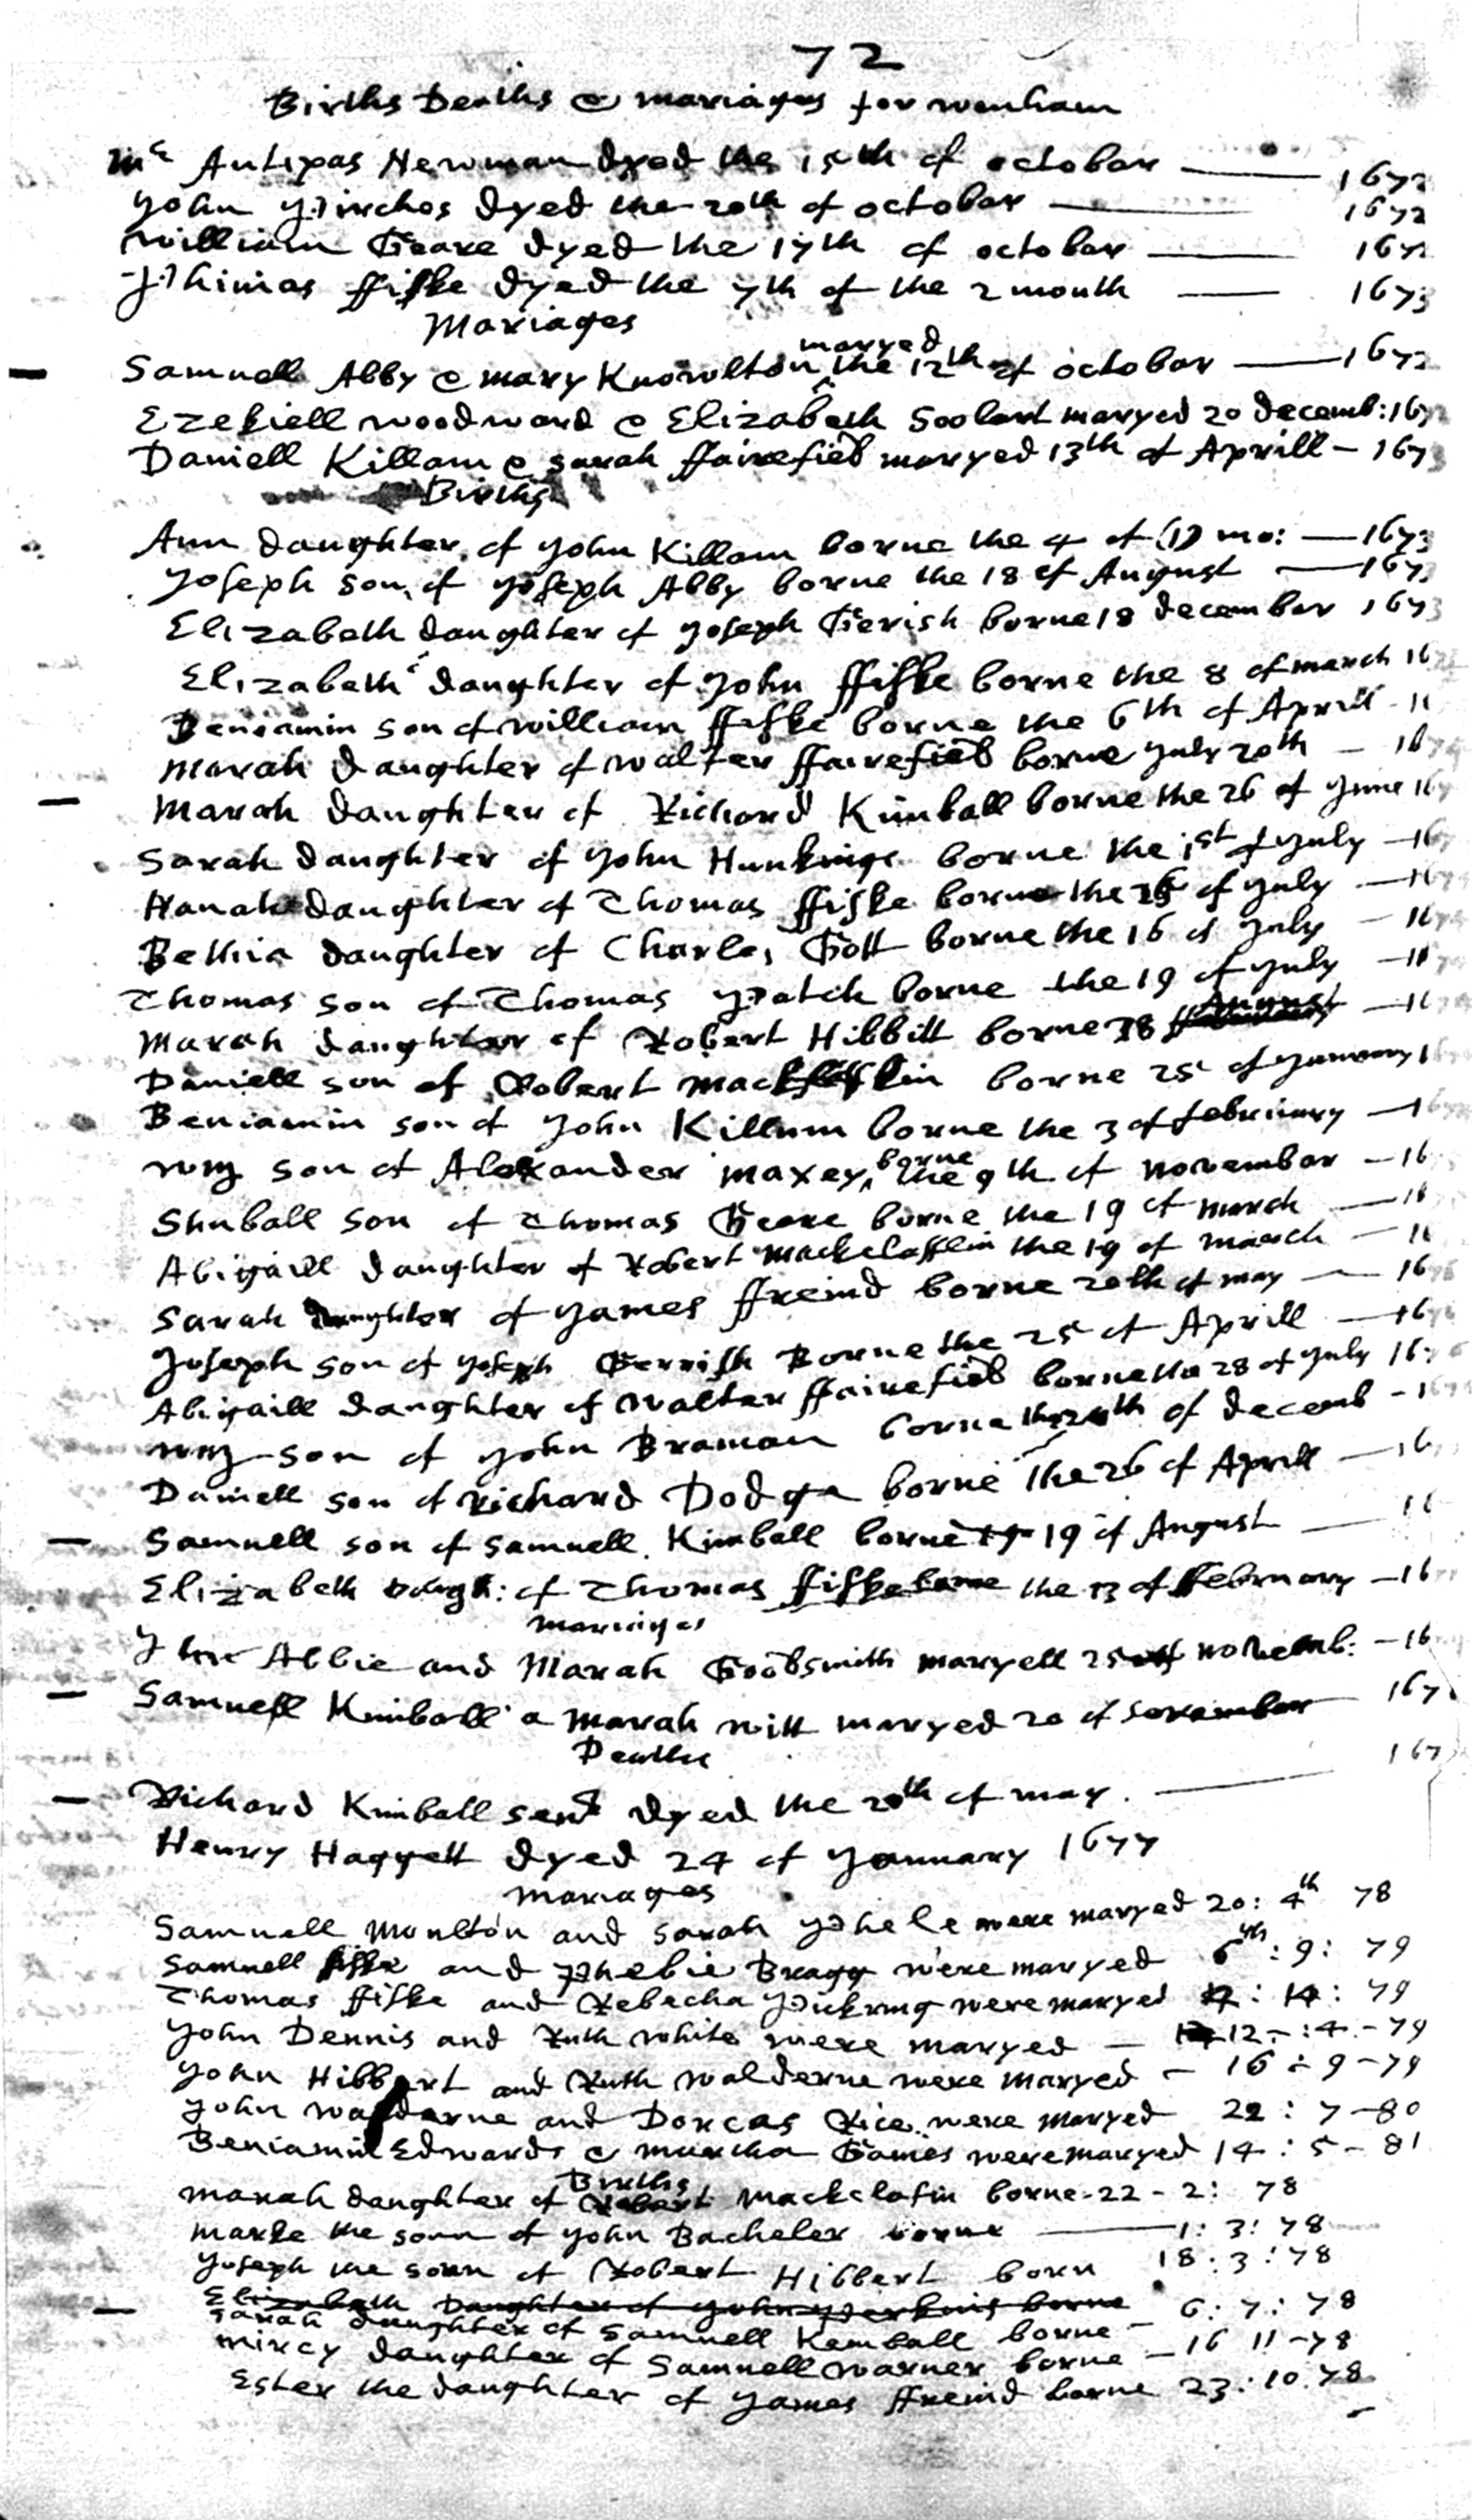 72
Births Deaths & mariages for wenham
Mr Antipas Newman dyed the 15th of october 1672
John Pirches dyed the 20th of october 1672
William Geare dyed the 17th of october 1672
Phinias ffiske dyed the 7th of the 2 month 1673
Mariages
Samuell Abby & mary Knowlton maryed the 12th of october 1672
Ezekiell woodward & Elizabeth Soolart maryed 20 decemb: 1672
Daniell Killam & sarah ffairefield maryed 13th of Aprill - 1673
Births
Ann daughter of John Killam borne the 4 of (1) mo: 1673
Joseph son of Joseph Abby borne the 18 of August 1673
Elizabeth daughter of Joseph Gerish borne 18 december 1673
Elizabeth daughter of John ffiske borne the 8 of march 16
Beniamin son of william ffiske borne the 6th of Aprill
Marah daughter of walter ffairefield borne July 20th - 16
Marah daughter of Richard Kimball borne the 26 of June 16
Sarah daughter of John Hunkings borne the 1st of July 16
Hanah daughter of Thomas ffiske borne the of July 16
Bethia daughter of Charles Gott borne the 16 of July 16
Thomas son of Thomas Patch borne the 19 of July
Marah daughter of Robert Hibbitt borne 18 August 16
Daniell son of Robert borne 25 of January
Beniamin son of John Killum borne the 3 of february
Wm son of Alexander maxey borne the 9th of november - 16
Shuball son of Thomas Geare borne the 19 of march 16
Abigaill daughter of Robert mackclafflin the 19 of march
Sarah daughter of James ffreind borne 20th of may 1676
Joseph son of Joseph Gerrish Borne the 25 of Aprill 16
Abigaill daughter of walter ffairefield borne the 28 of July 16
Wm son of John Braman borne the of decemb
Daniell son of Richard Dodge borne the 26 of Aprill 16
Samuell son of samuell Kimball borne 19 of August
Elizabeth daugh: of Thomas ffiske borne the 13 of ffebruary - 16
Mariages
Abbie and Marah Goodsmith maryell 25 of Novemb: - 16
Samuell Kimball & Marah Witt maryed 20 of 167
Deaths 167
Richard Kimball senr dyed the 20th of may
Henry Haggett dyed 24 of January 1677
Mariages
Samuell Moulton and Sarah Phele were maryed 20: 4th 78
Samuell ffiske and Phebie Bragg were maryed 6th : 9: 79
Thomas ffiske and Rebecha Pickring were maryed : 79
John Dennis and Ruth white were maryed - 12 - : 4 - 79
John Hibbert and Ruth walderne were maryed - 16 - 9 - 79
John walderne and Dorcas Rice were maryed 22 : 7 - 80
Beniamin Edwards & martha Games were maryed 14 : 5 - 81
Births
Marah daughter of Robert Mackclafin borne - 22 - 2: 78
Marke the sonn of John Bacheler borne 1: 3: 78
Joseph the sonn of Robert Hibbert born 18 : 3 : 78
Elizabeth Daughter of John Perkins borne
Sarah daughter of Samuell Kemball borne - 6: 7: 78
Mircy daughter of Samuell Warner borne - 16 11 - 78
Ester the daughter of James ffreind borne 23: 10. 78